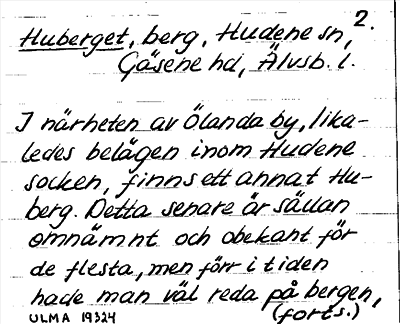 2.
Huberget, berg, Hudene sn,
Gäsene hd, Älvsb. l.
I närheten av Ölanda by, lika-
ledes belägen inom Hudene
socken, finns ett annat Hu-
berg. Detta senare är sällan
omnämnt och obekant för
de flesta, men förr i tiden
hade man väl reda på bergen,
ULMA 19324 (forts.)